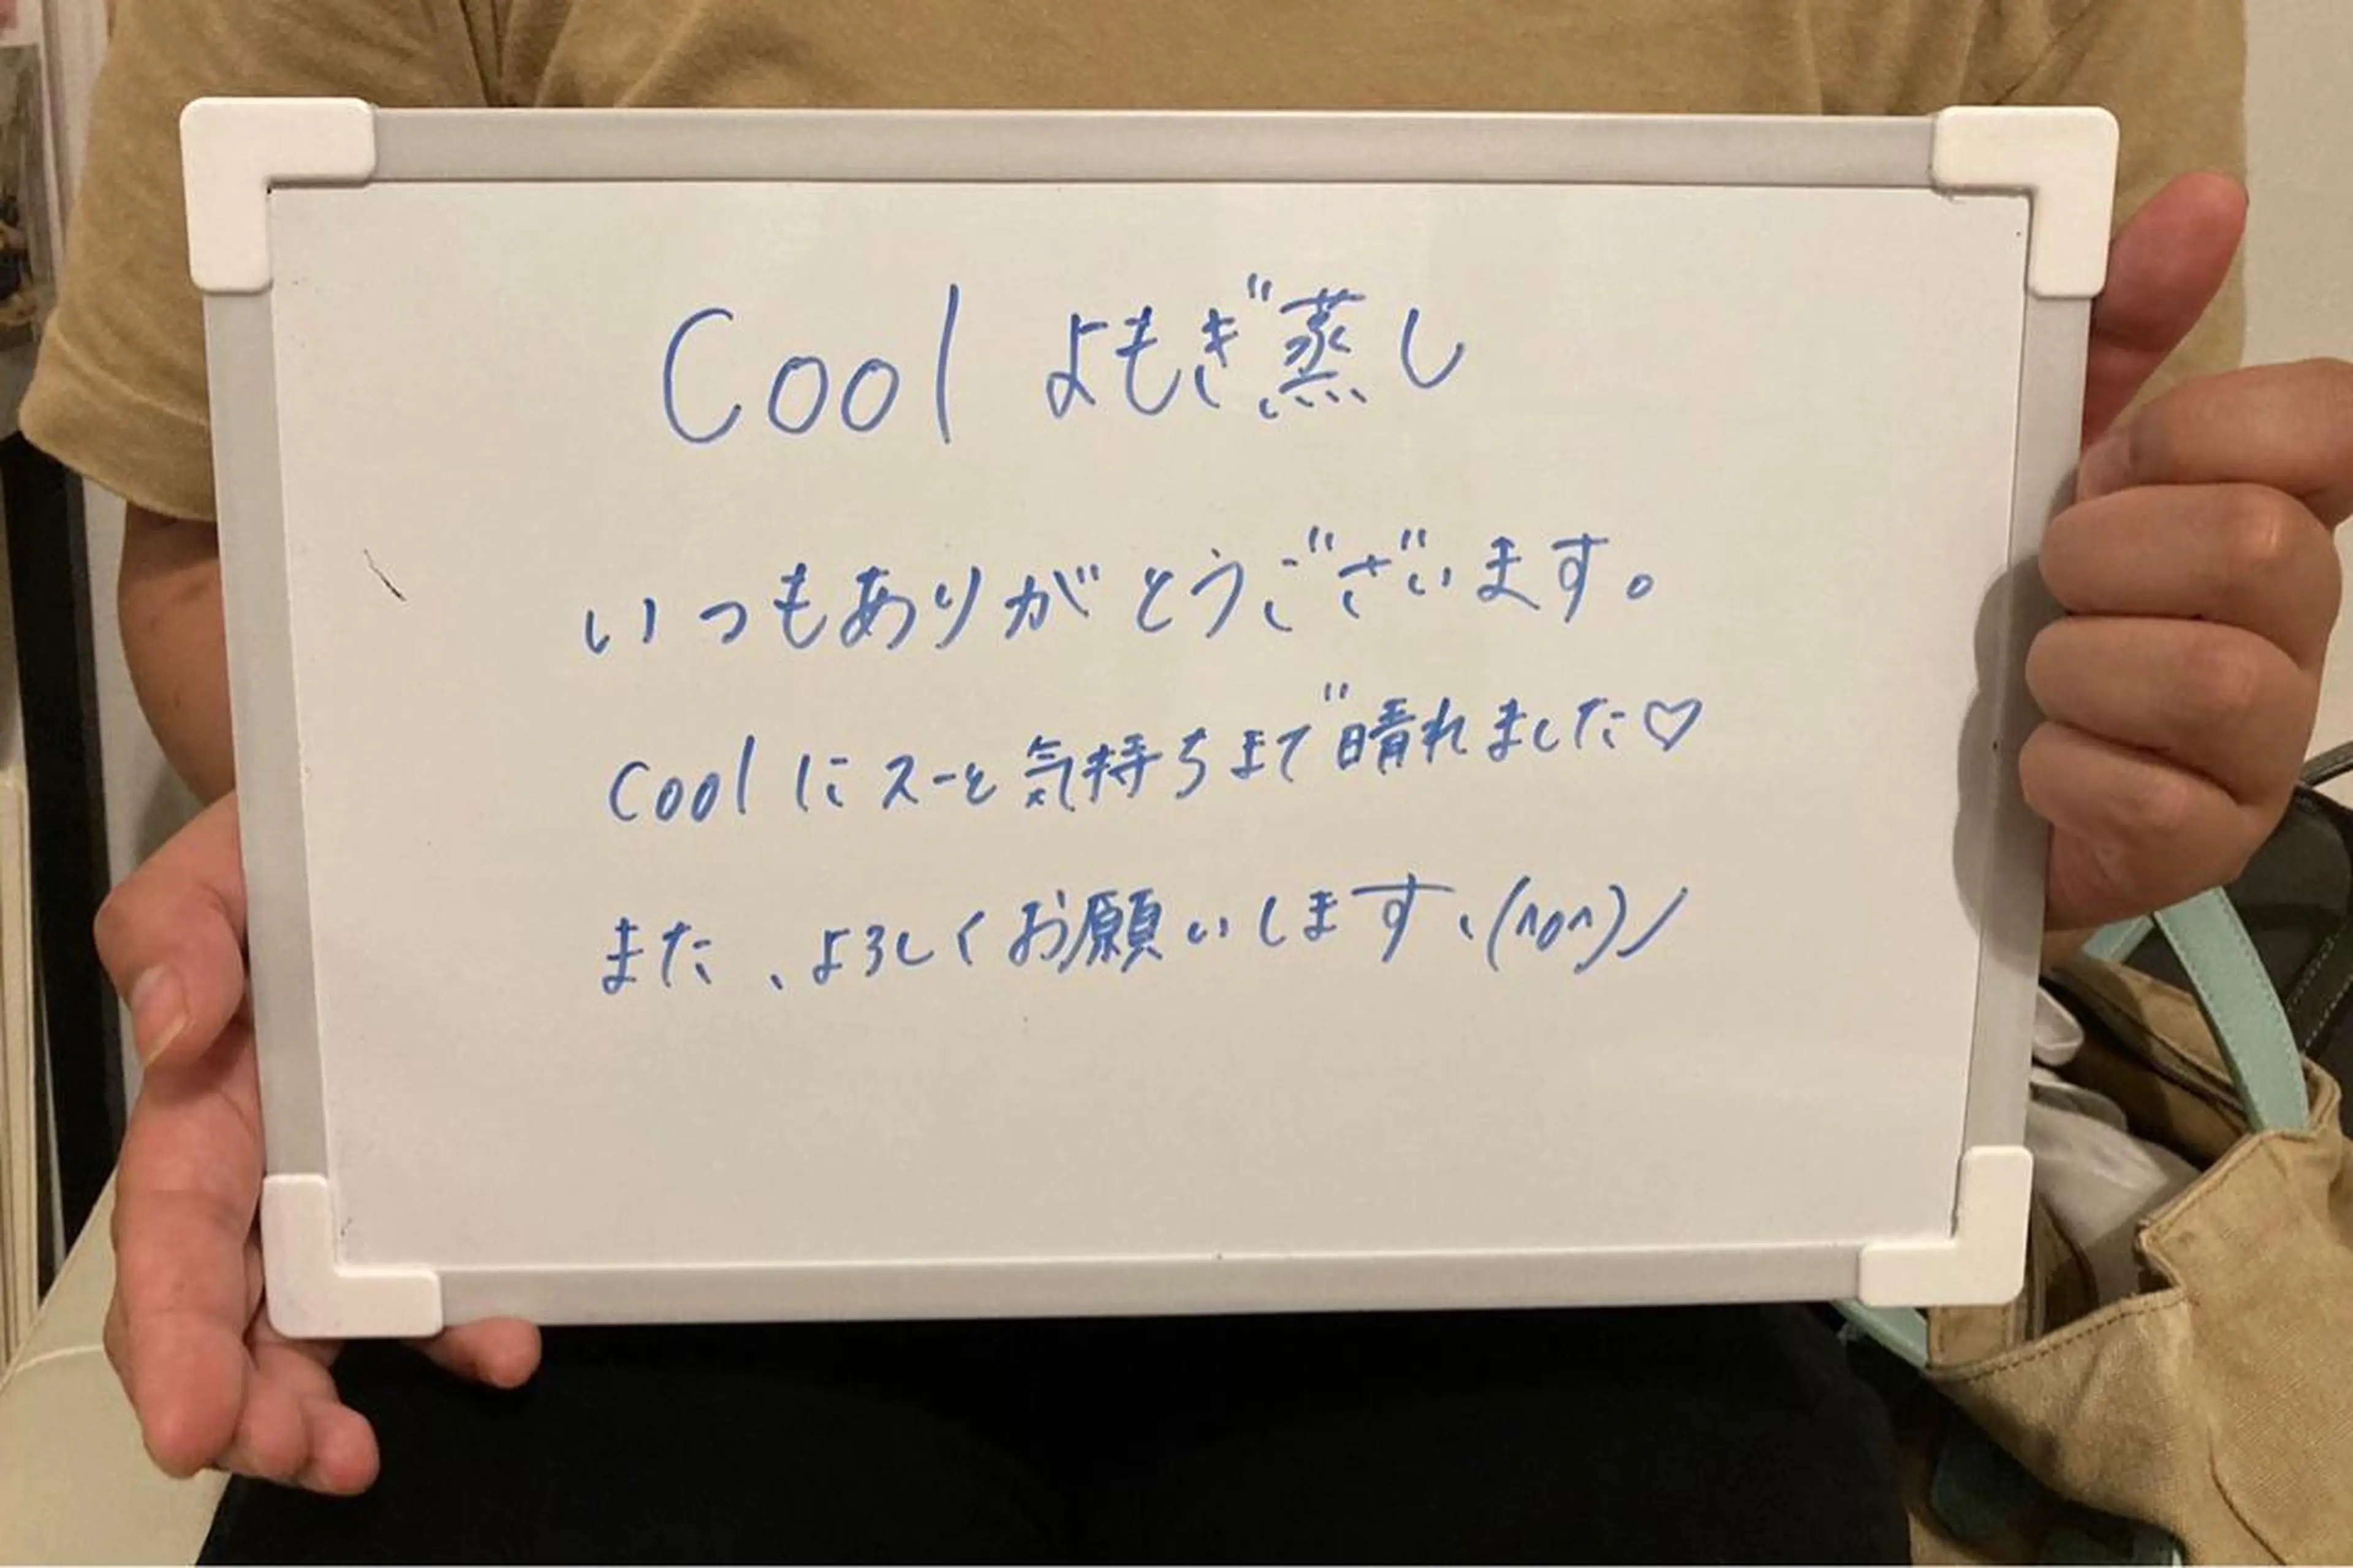 Cool よもぎ蒸し
いつもありがとうございます。
Cool にスーと気持ちまで晴れました♡
また、よろしくお願いします、(^o^)ノ